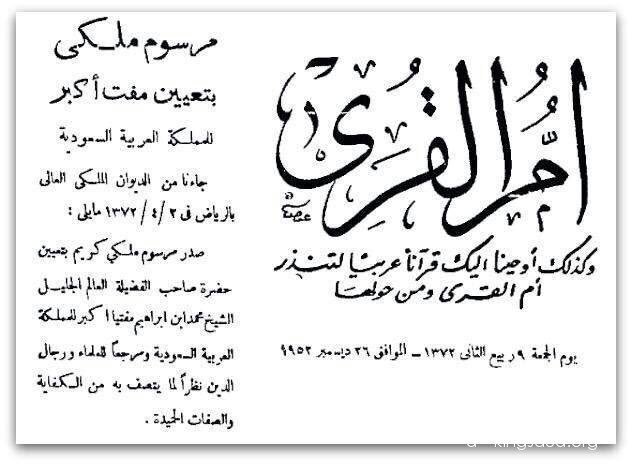 أم القرى
وكذلك أوحينا اليك قرآنا عربيا لتنذر
أم القرى ومن حولها
يوم الجمعة ٩ ربيع الثانى ١٣٧٢ – الموافق ٢٦ ديسمبر ١٩٥٢
مرسوم ملكي
بتعيين مفت أكبر
للمملكة العربية السعودية
جاءنا من الديوان الملكى العالى
بالرياض فى ٢/٤/١٣٧٢ مايلى :
صدر مرسوم ملكي كريم بتعيين
حضرة صاحب الفضيلة العالم الجليل
الشيخ محمد ابن ابراهيم مفتيا اكبر للمملكة
العربية السعودية ومرجعا للعلماء ورجال
الدين نظراً لما يتصف به من الكفاية
والصفات الحميدة .